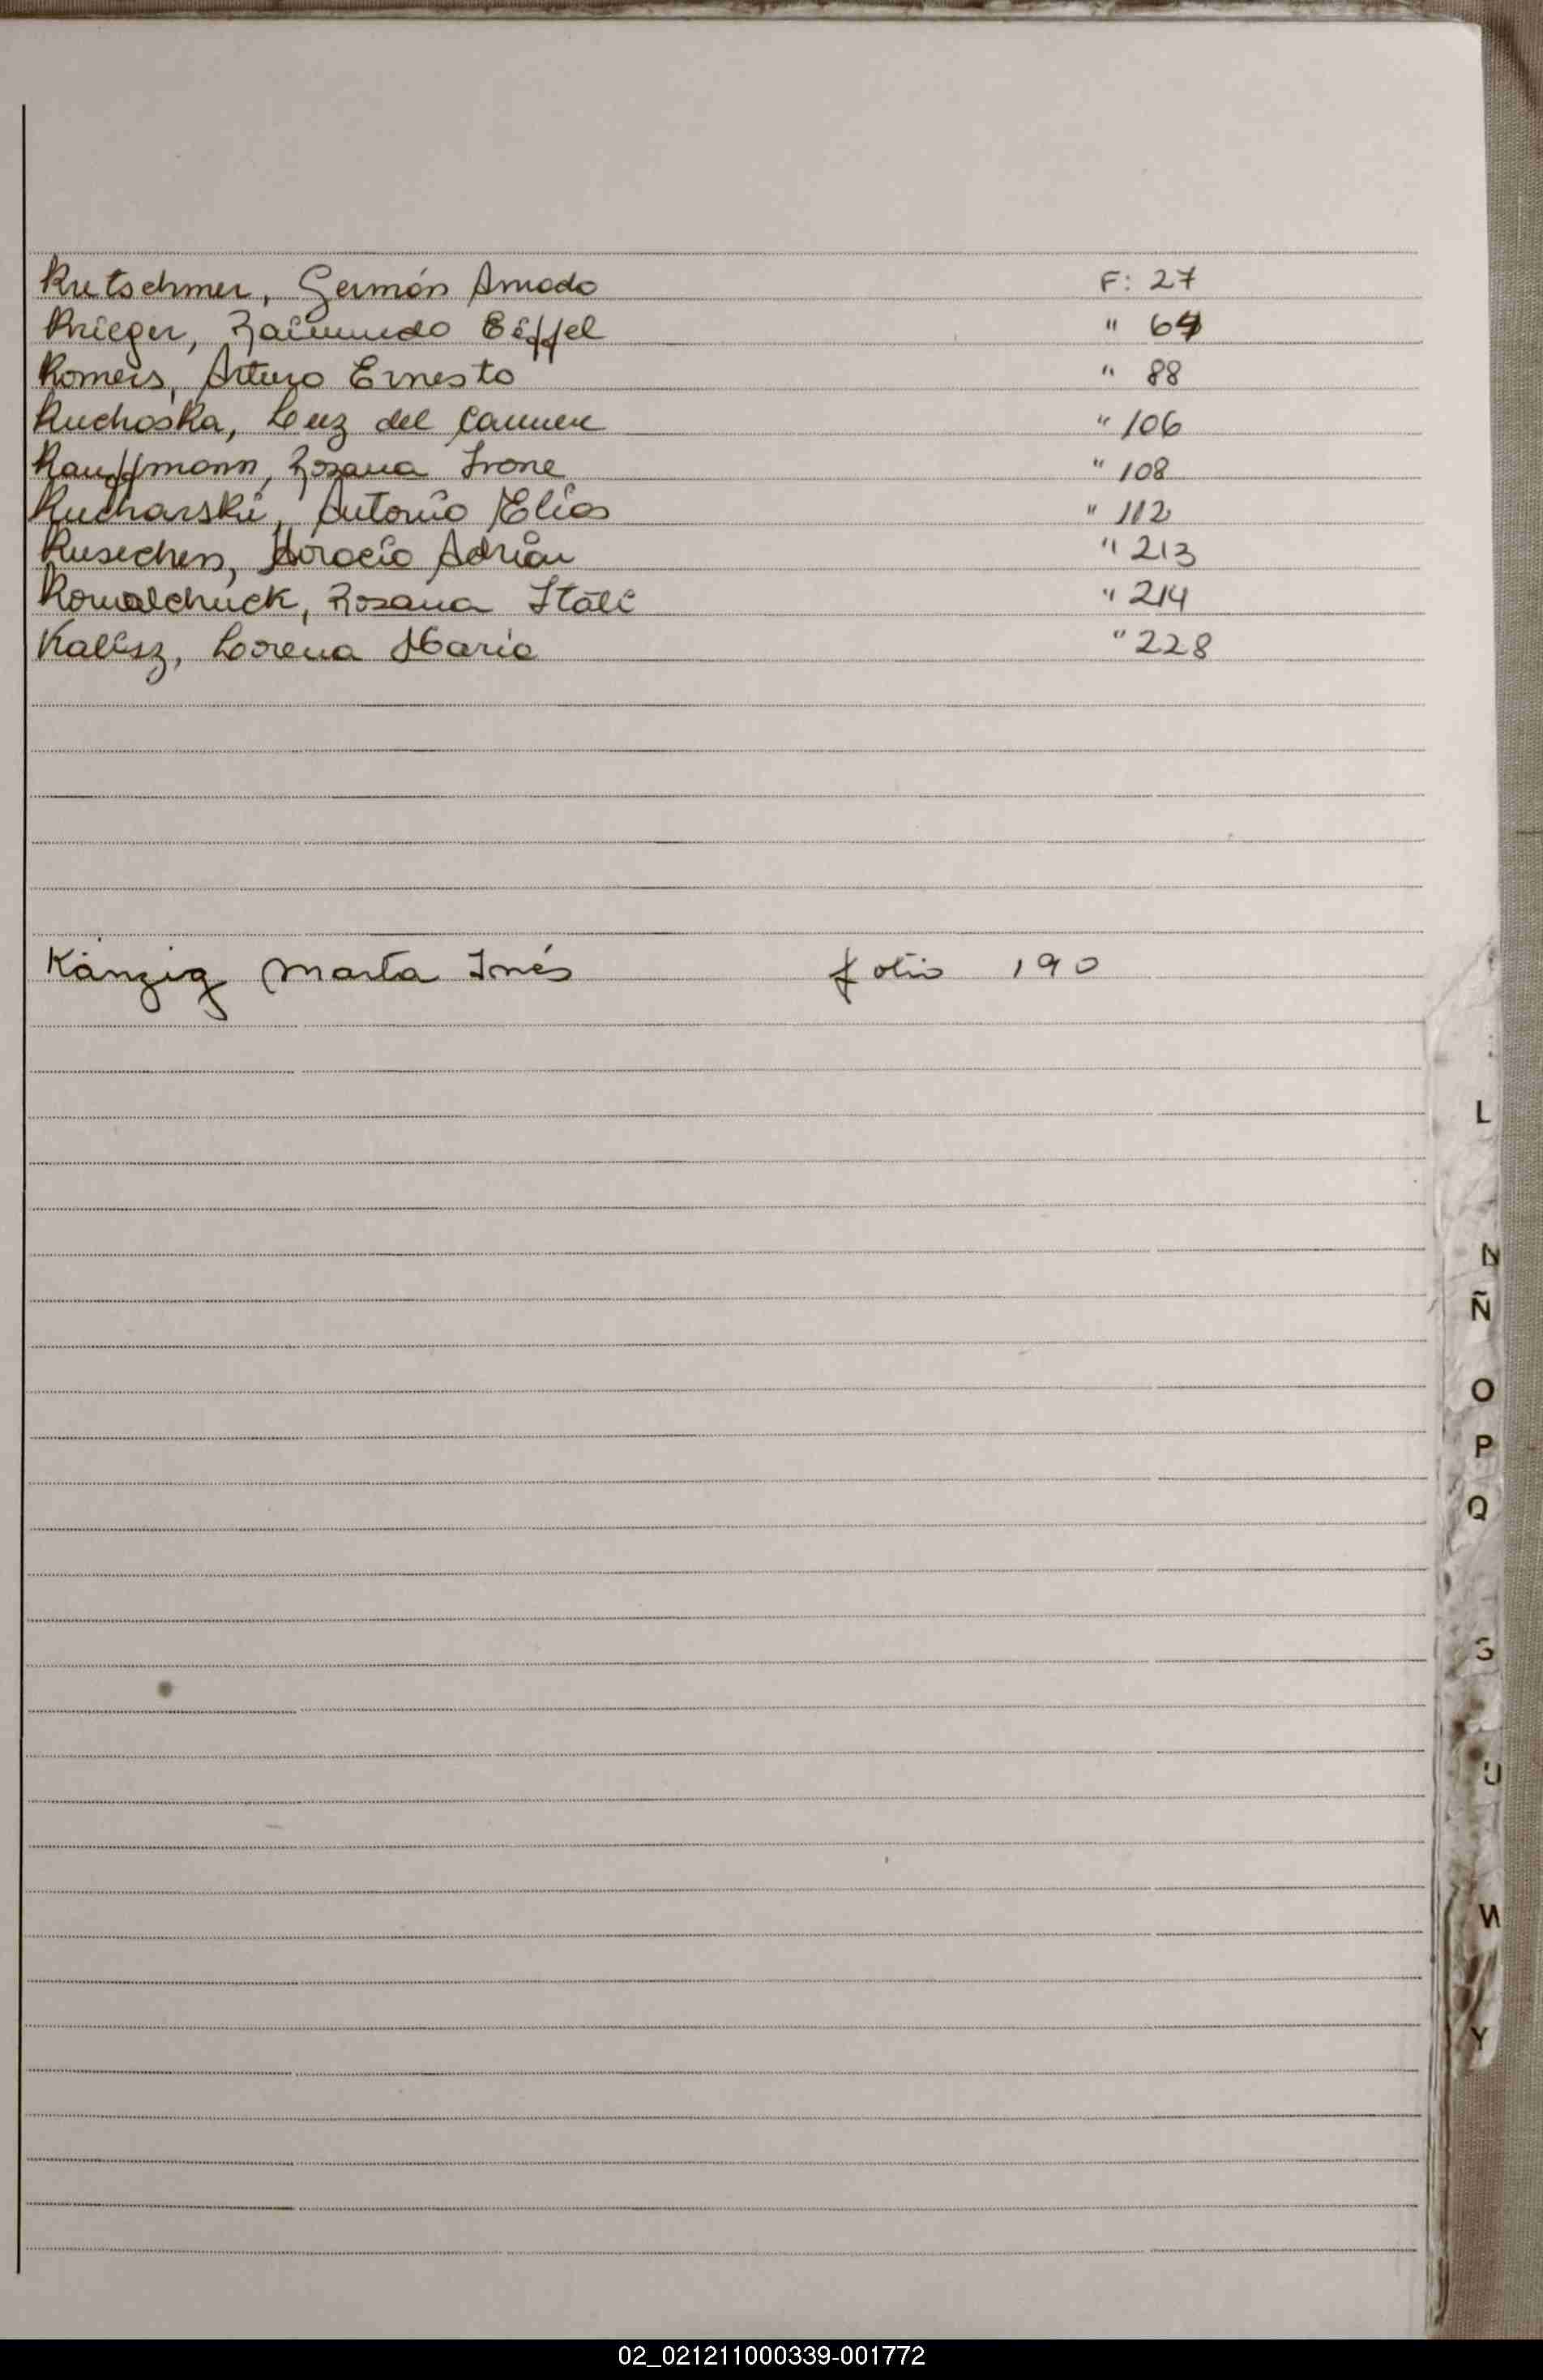 Kretschmer, Germán Amado F: 27
Krieger, Raimundo Eiffel " 64
Komers, Arturo Ernesto " 88
Kuchoska, Luz del Carmen " 106
Kauffmann, Rosana Irone " 108
Kucharski, Antonio Elias " 112
Kusechen, Horacio Adrián " 213
Kowalchuck, Rosana Itatí " 214
Kalisz, Lorena Maria " 228
Känzig Marta Inés folio 190
L
N
Ñ
O
P
Q
S
U
W
Y
02_021211000339-001772